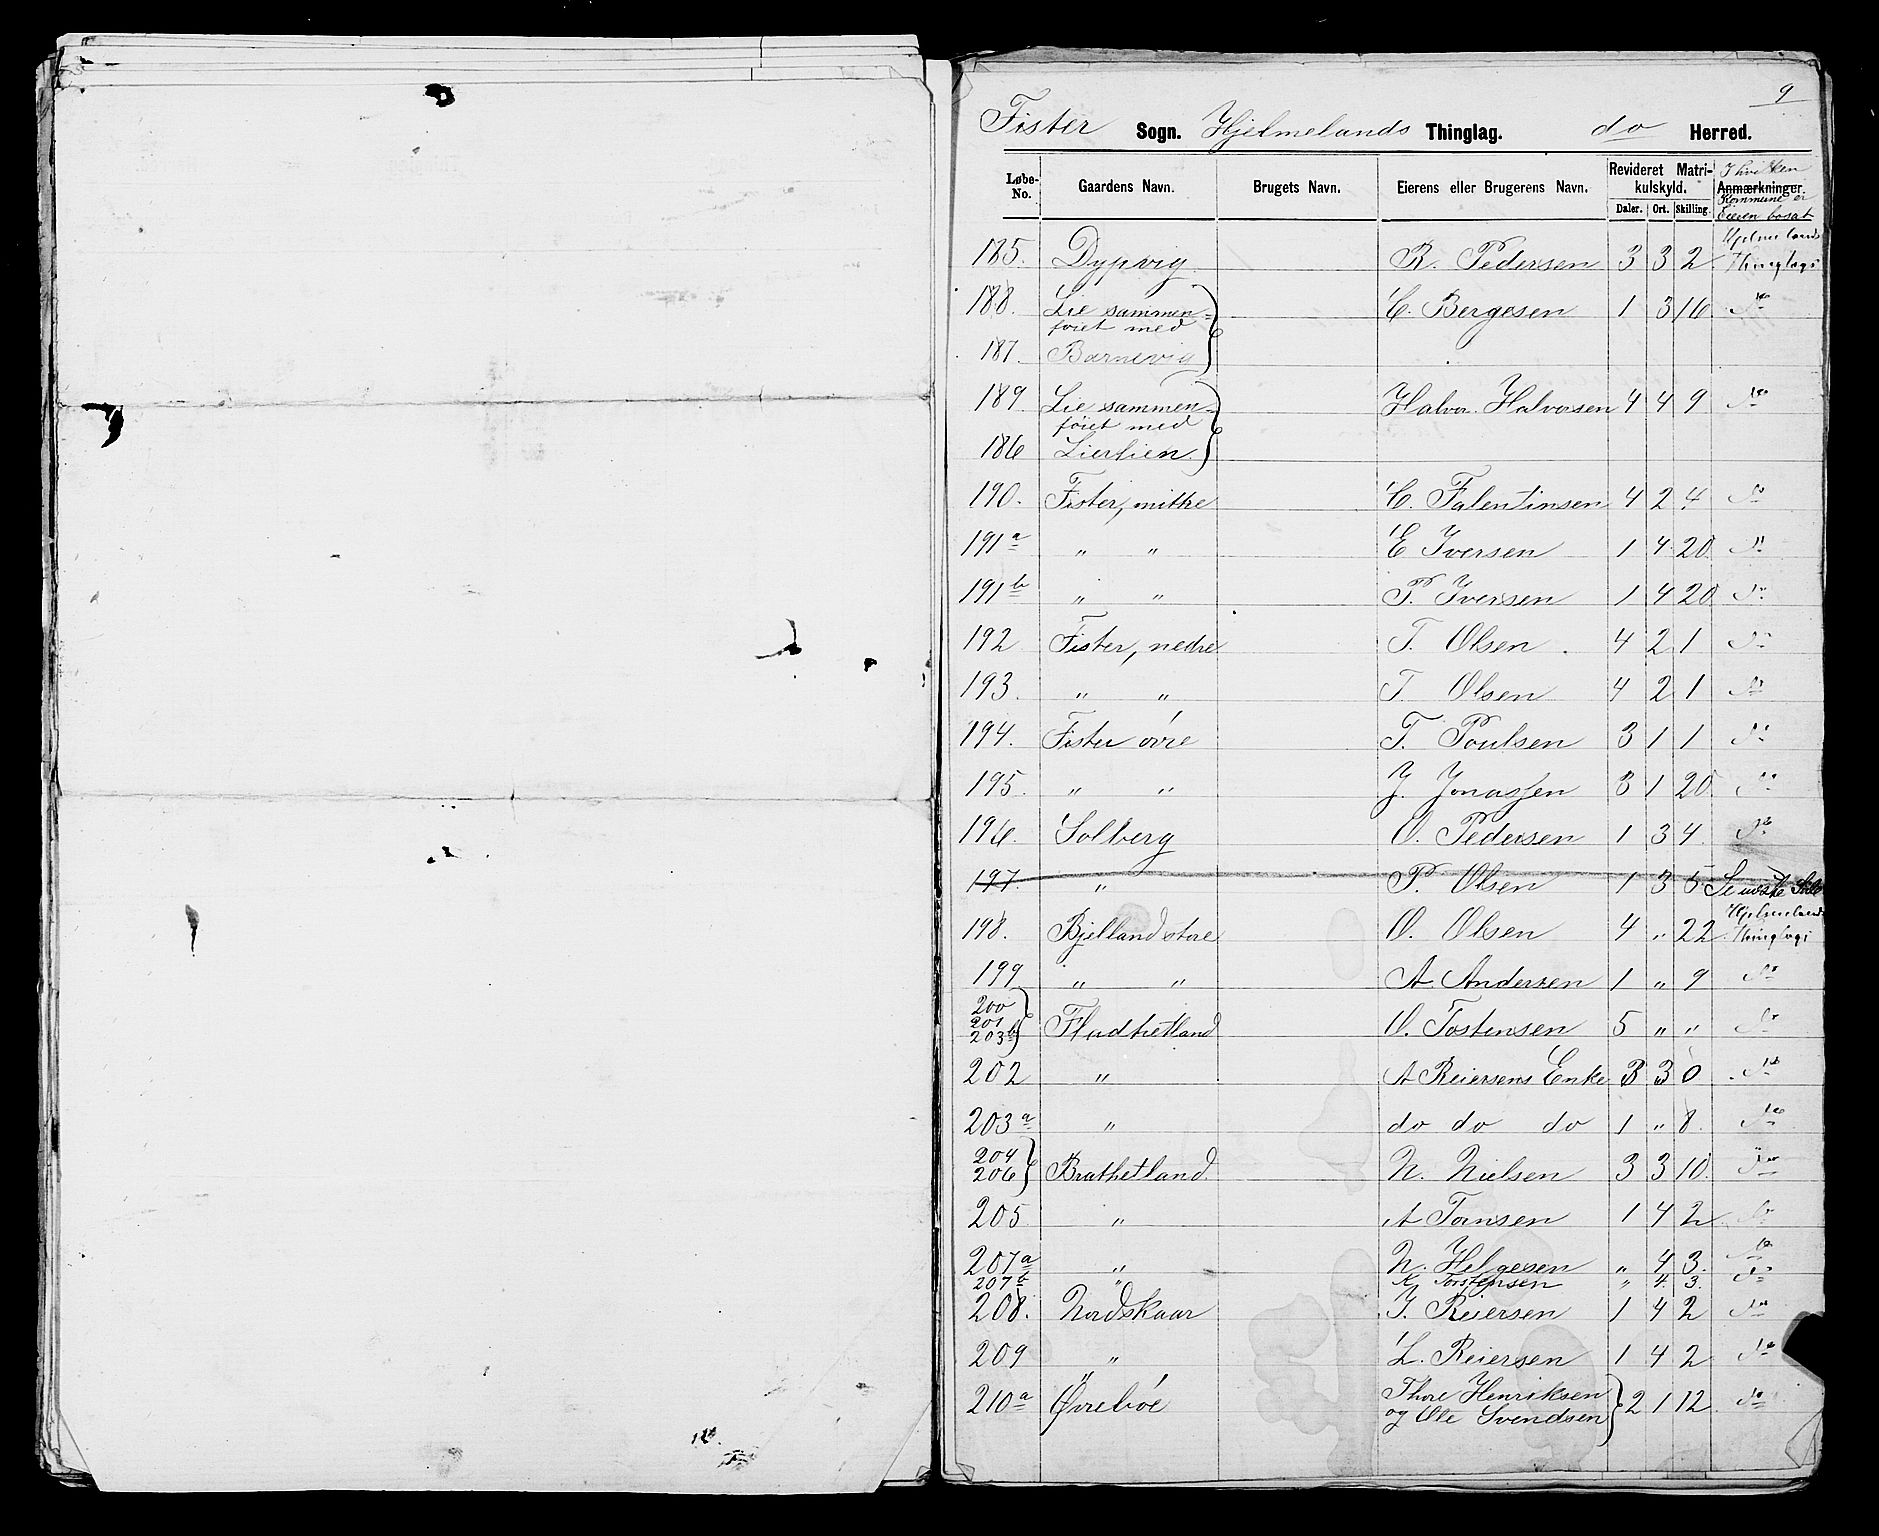 9
Fister Sogn. Hjelmelands Thinglag. do Herred.
Løbe-No. Gaardens Navn. Brugets Navn. Eierens eller Brugerens Navn. Revideret Matrikulskyld. Daler. Ort. Skilling. Anmærkninger. I hvilken Kommune er Eieren bosat
185. Dypvig R. Pedersen 3 3 2 Hjelmelands Thinglag
188. Lie sammen-
føiet med C. Bergesen 1 3 16 do
187. Barnevig
189. Lie sammen-
føiet med Halvor Halvorsen 4 4 9 do
186 Lierlien
190. Fister, mittre C. Falentinsen 4 2 4 do
191a " " E Iversen 1 4 20 do
191b " " P. Iversen 1 4 20 do
192 Fister, nedre T. Olsen 4 2 1 do
193. " " T Olsen 4 2 1 do
194. Fister øvre T. Poulsen 3 1 1 do
195. " " J. Jonassen 3 1 20 do
196. Solberg O. Pedersen 1 3 4 do
197. " P. Olsen 1 3 5
198. Bjelland store O. Olsen 4 " 22 Hjelmelands Thinglag
199 " " A Andersen 1 " 9 do
200
201
203b Fladhetland O. Tostensen 5 " " do
202 " A Reiersens Enke 3 3 0 do
203a " do do do 1 " 8 do
204
206 Brathetland N. Nielsen 3 3 10 do
205 " A Tornsen 1 4 2 do
207a " N. Helgesen " 4 3 do
207b " K. Torstensen " 4 3 do
208. Nordskaar J. Reiersen 1 4 2 do
209 " L. Reiersen 1 4 2 do
210a Øvrebøe Thore Henriksen
og Ole Svendsen 2 1 12 do